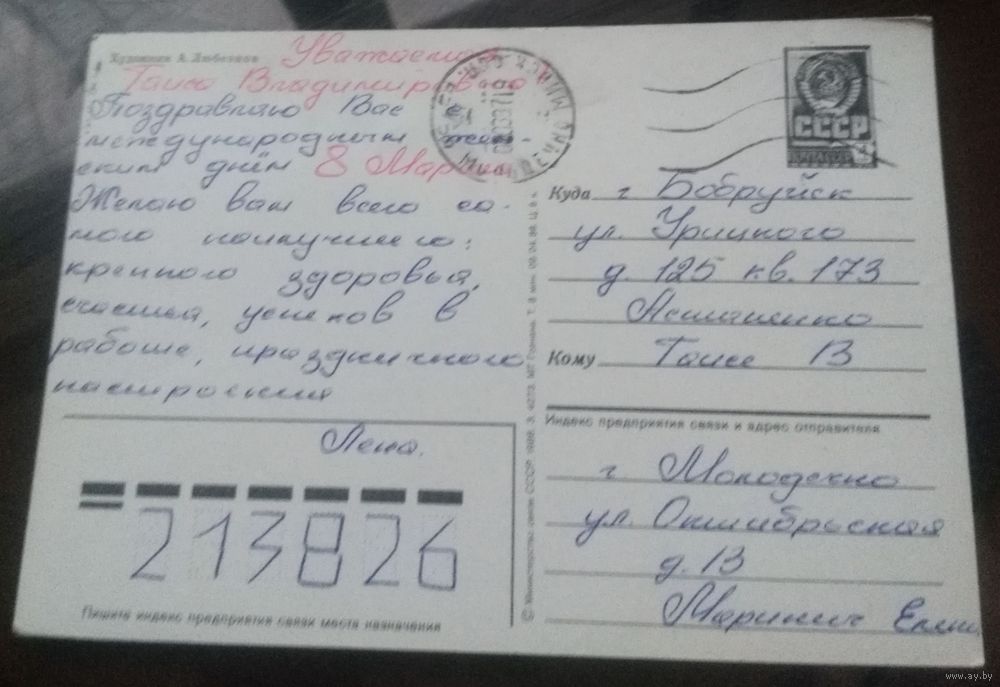 Художник А. Любезнов
Уважаемая
Таиса Владимировна
Поздравляю Вас с
международным жен-
ским днём 8 Марта
Желаю вам всего са-
мого наилучшего:
крепкого здоровья,
счастья, успехов в
работе, праздничного
настроения
Лена.
213826
Пишите индекс предприятия связи места назначения
СССР
Куда г Бобруйск
ул. Урицкого
д. 125 кв. 173
Кому Таисе В
Индекс предприятия связи и адрес отправителя
г Молодечно
ул. Октябрьская
д. 13
Маринич
© Министерство связи СССР. 1988. З.
www.ay.by